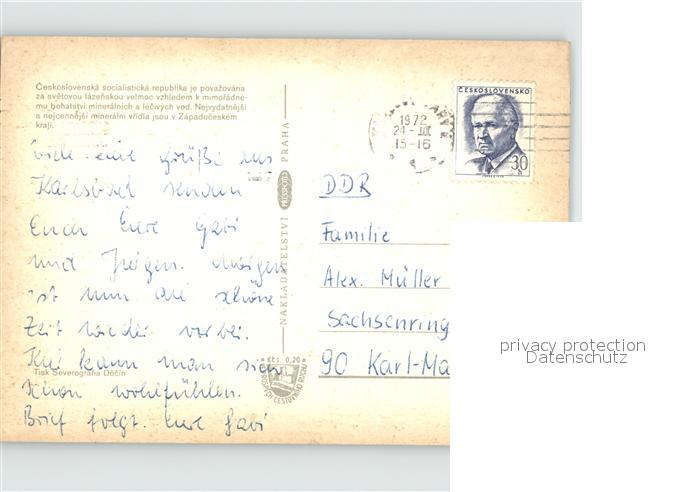 Československá socialistická republika je považována
za světovou lázeňskou velmoc vzhledem k mimořádné-
mu bohatství minerálních a léčivých vod. Nejvydatnější
a nejcennější minerální vřídla jsou v Západočeském
kraji.
ČESKOSLOVENSKO
30
h
1972
24 -
15-16
Viele liebe Grüße aus
Karlsbad senden
Euch Eure Gabi
und Jürgen. Morgen
ist nun die schöne
Zeit wieder vorbei.
Hier kann man sich
schon wohlfühlen.
Brief folgt. Eure Gabi
NAKLADATELSTVÍ PRESSFOTO PRAHA
Kčs 0,20
Tisk Severografia Děčín
DDR
Familie
Alex. Müller
Sachsenring
90 Karl-Ma
privacy protection
Datenschutz